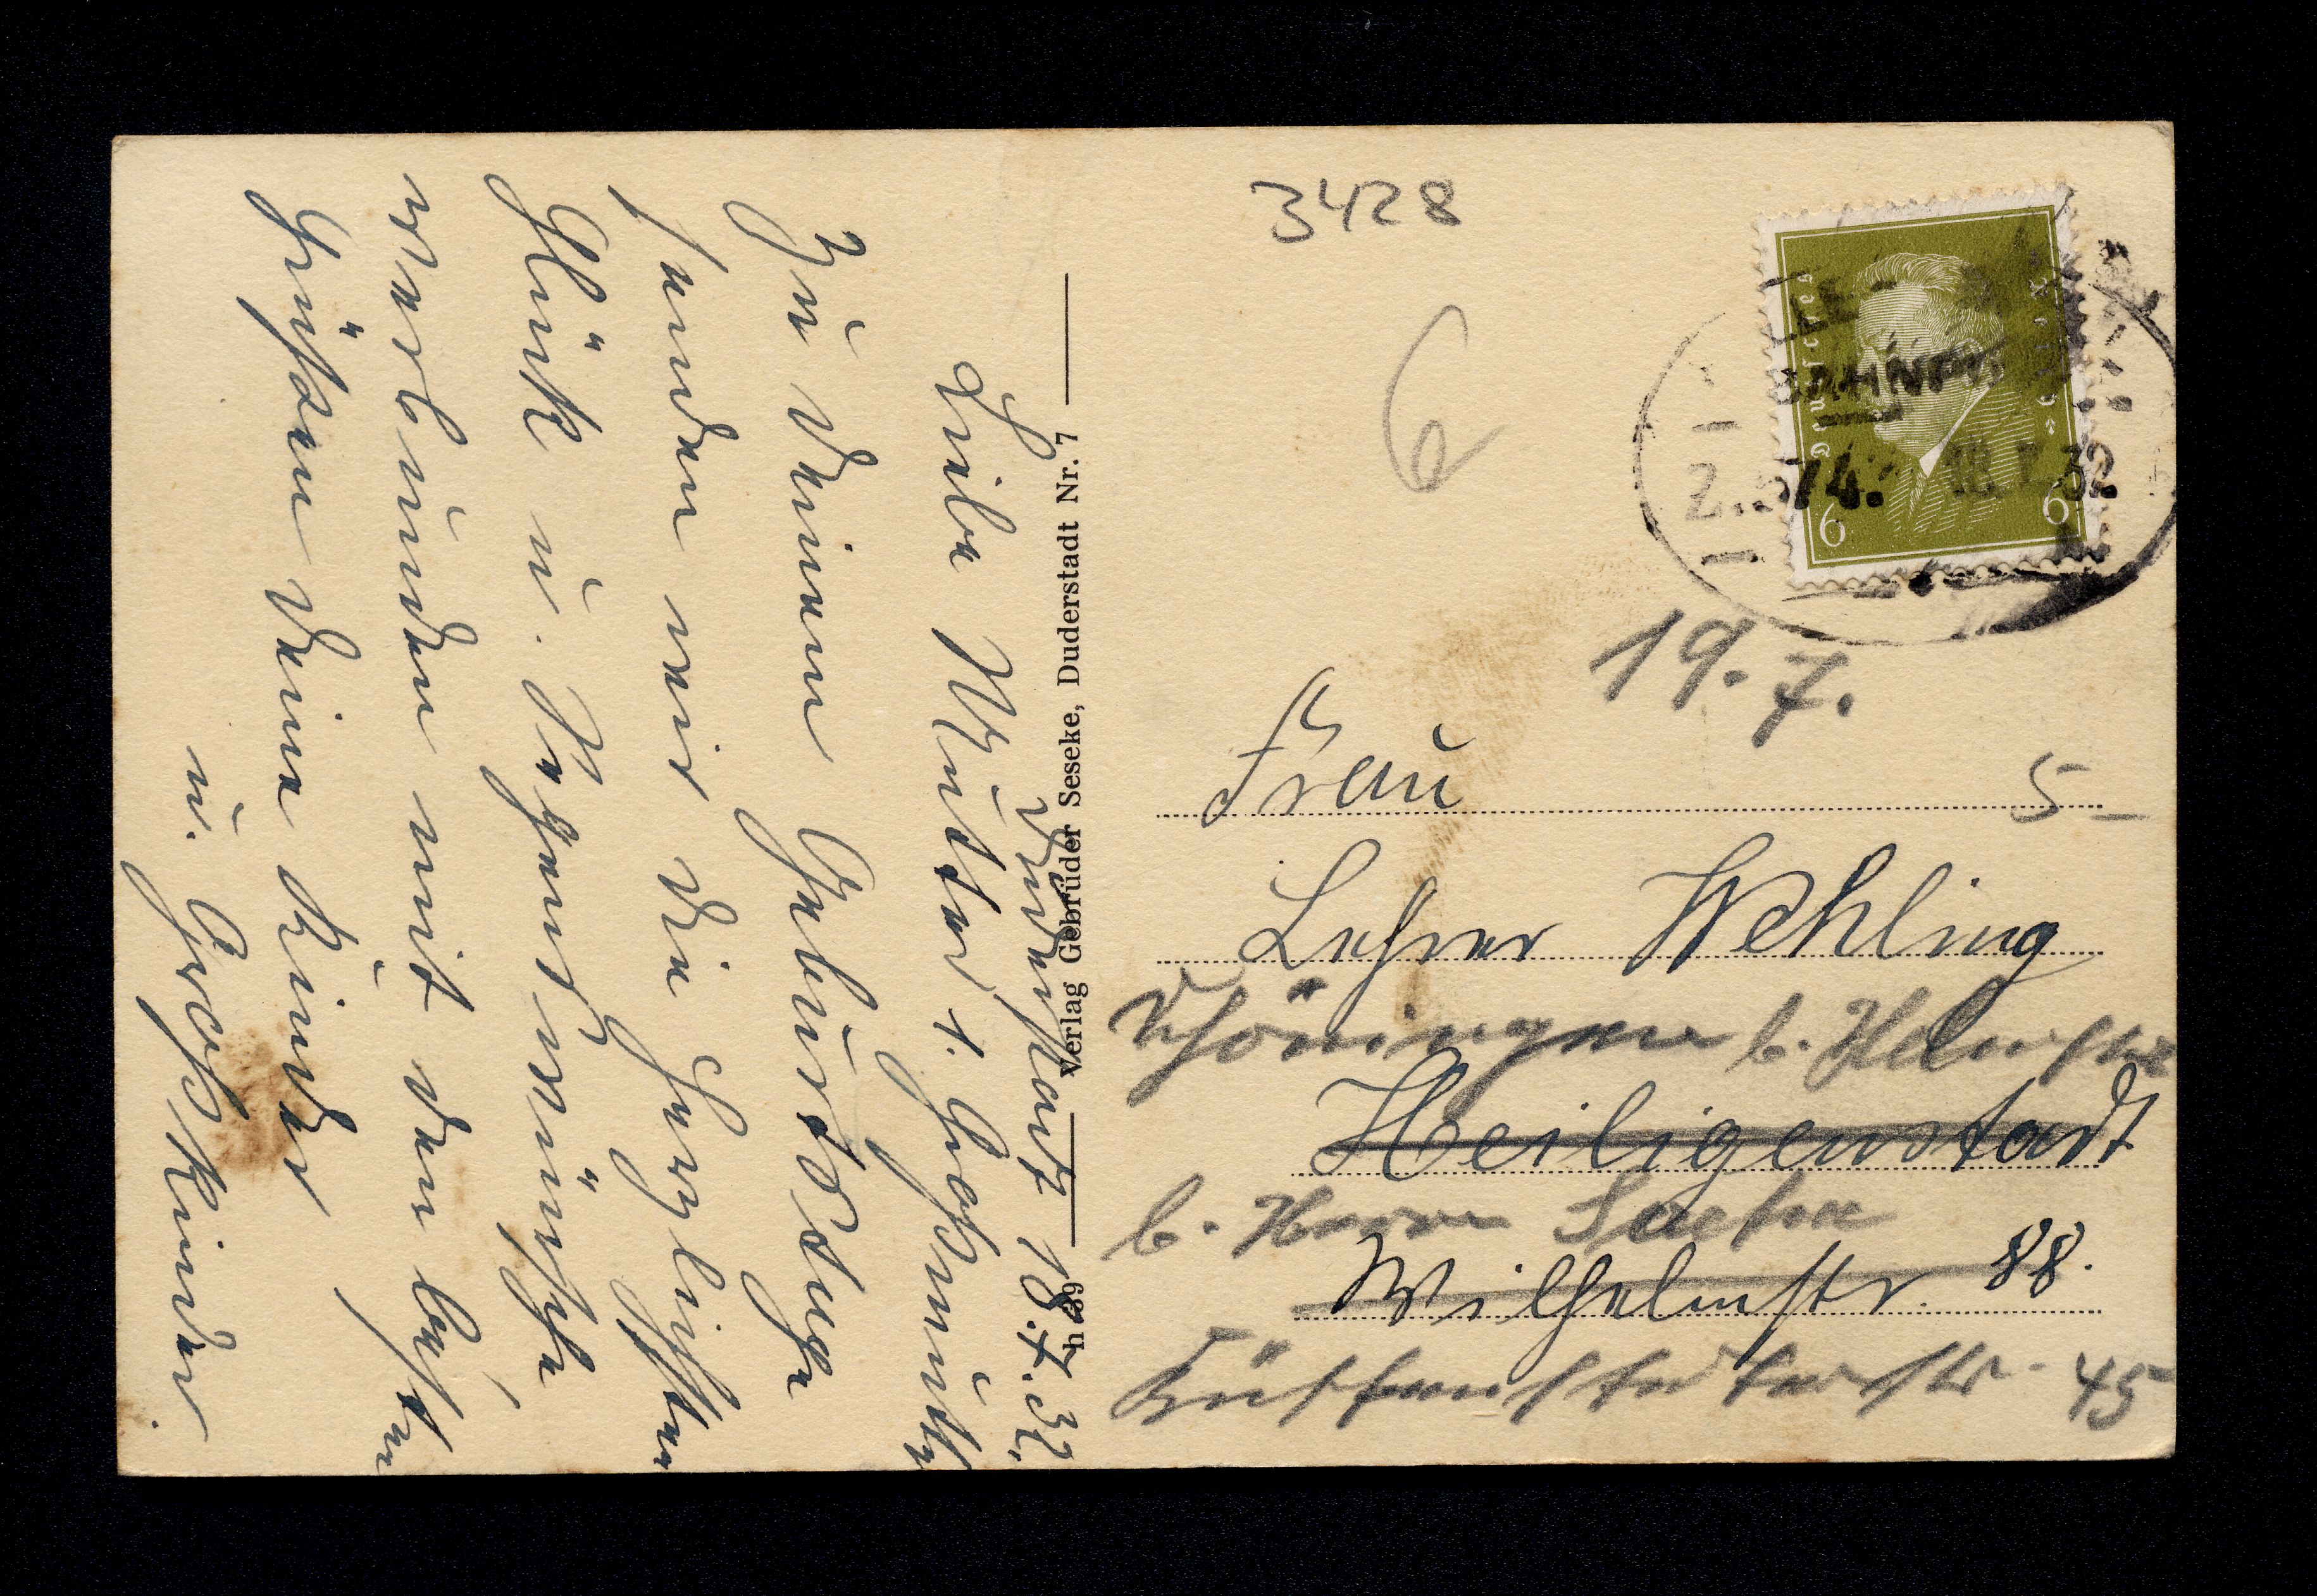 Duderstadt 18.7.32.
Liebe Mutter u. Großmutter
Zu Deinem Geburtstage
senden wir die herzlichsten
Glück u. Segenswünsche
verbunden mit den besten
Grüßen Deine Kinder
u. Großkinder.
Verlag Gebrüder Seseke, Duderstadt Nr. 7
3428
6
Deutsches Reich
6 6
BAHNPOST
Z. 574. 18.7.32
19.7.
Frau
5 –
Lehrer Wehling
Schöningen b. Helmstedt
Heiligenstadt
b. Herrn
Wilhelmstr. 88.
45